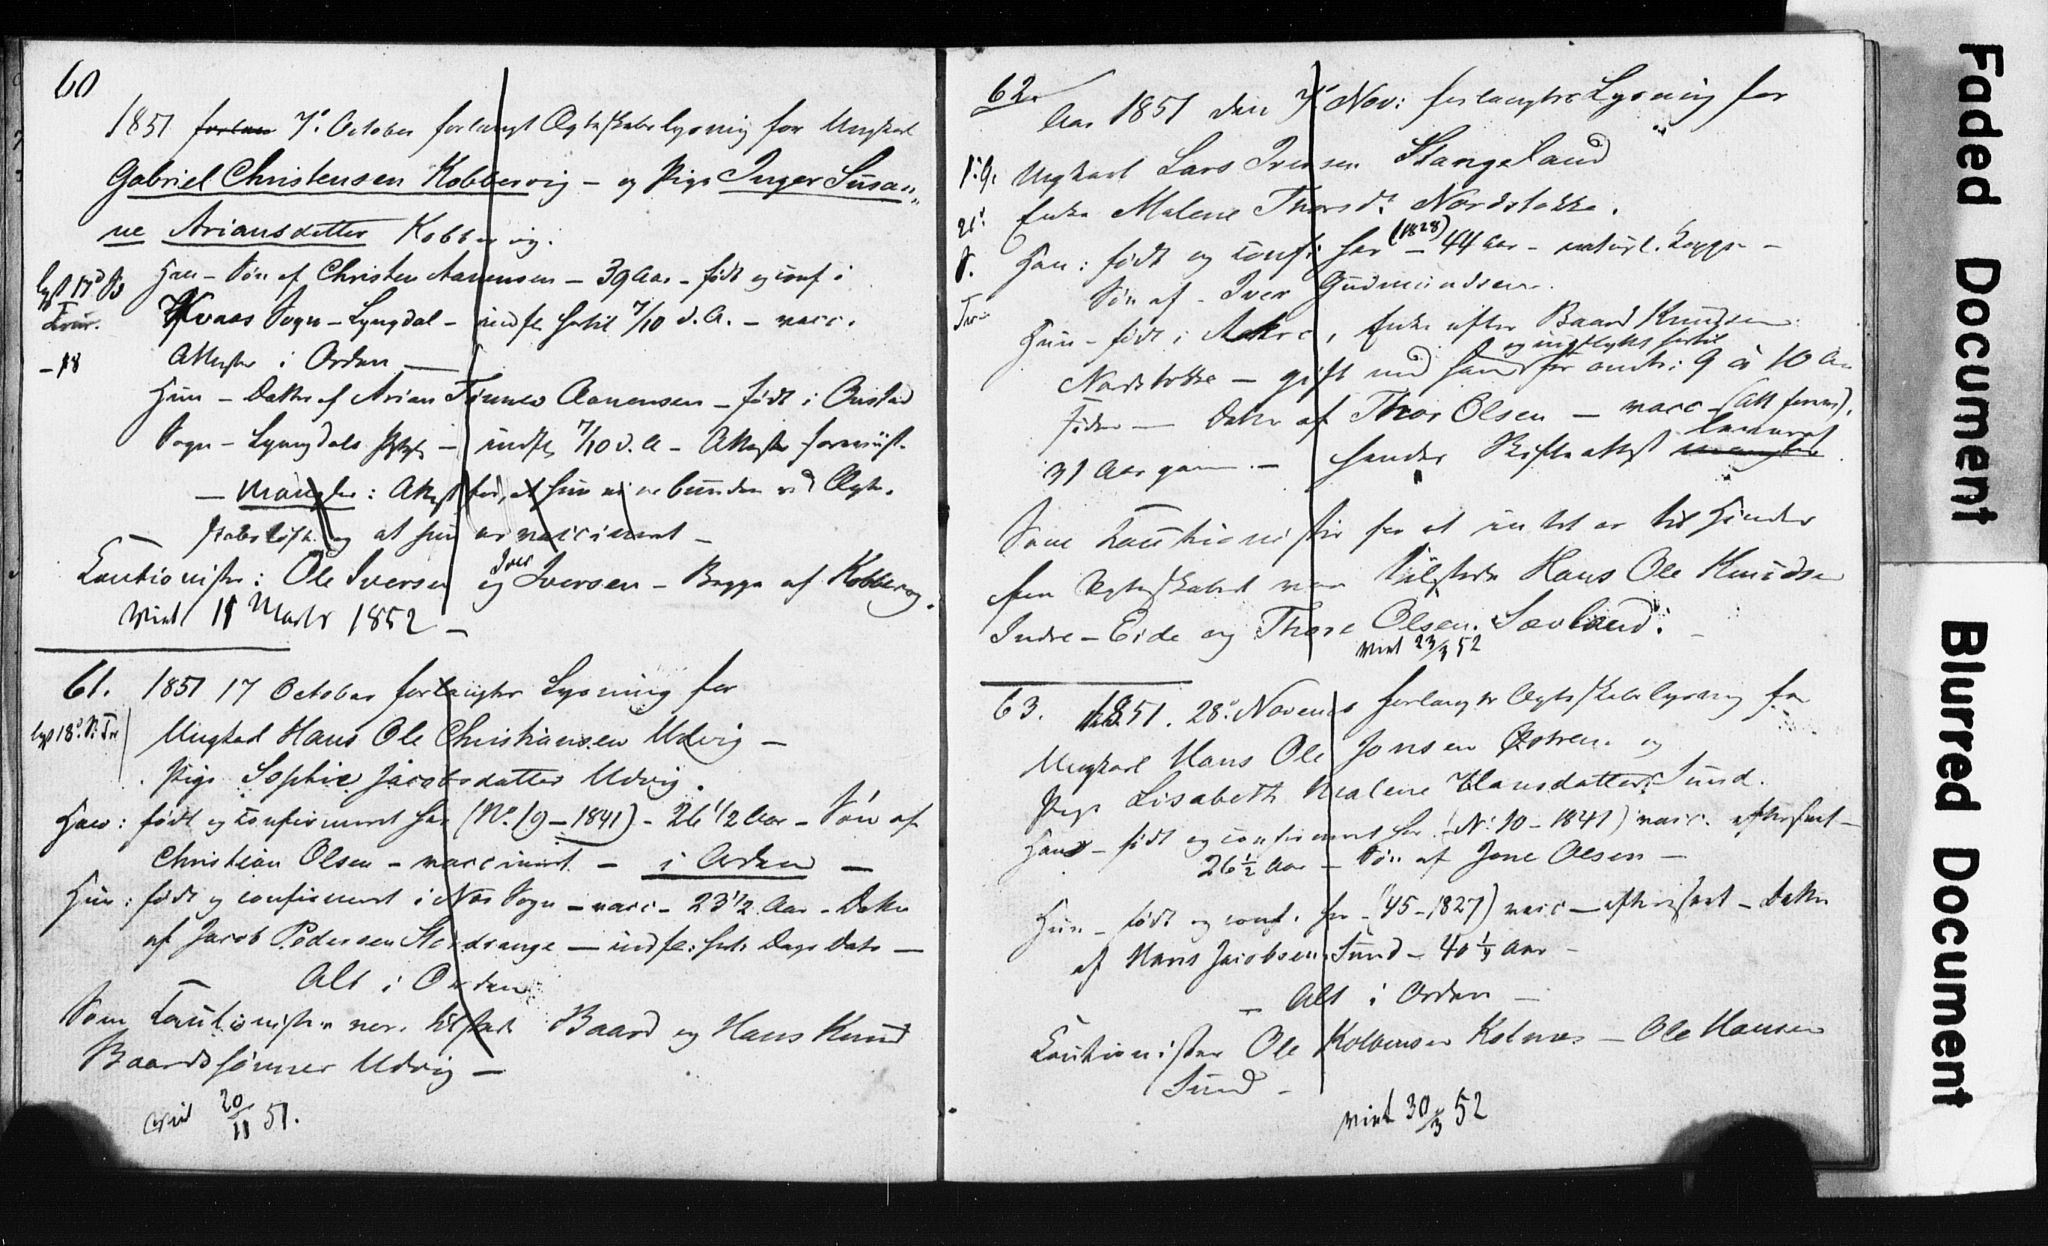 60
1851 forlan 7de October forlangt Ægteskabslysning for Ungkarl
Gabriel Christensen Kobbervig - og Pige Inger Susan-
ne Ariansdatter Kobbervig.
Han - Søn af Christen Aanensen - 39 Aar - født og conf i
Kvaas Sogn - Lyngdal - indfl hertil 7/10 d. A. - vacc.
Attester i Orden -
- 18
Hun - Datter af Arian Tønnes Aanensen - født i Austad
Sogn - Lyngdals - indfl 7/10 d. A - Attester
- mangler: Attest for, at hun ei er bunden ved Ægte-
skabsløfte og at hun er vaccineret -
Cautionister: Ole Iversen og Iver Iversen - Begge af Kobbervig.
Viet 11 Marts 1852 -
61. 1851 17 October forlangtes Lysning for
Ungkarl Hans Ole Christiansen Udvig -
Pige Sophie Jacobsdatter Udvig.
Han: født og confirmeret her (No. 19 - 1841) - 26 1/2 Aar - Søn af
Christian Olsen - vaccineret - i Orden -
Hun: født og confirmeret i Næs Sogn - vacc - 23 1/2 Aar - Datter
af Jacob Pedersen - indfl: hert. Dags Dato -
Alt i Orden
Som Cautionister var tilstede Baard og Hans Knud
Baardssønner Udvig -
Viet 20/11 51.
62.
Aar 1851 den 7de Nov: forlangtes Lysning for
Ungkarl Lars Iversen Stangeland
Enke Malene Thorsdr. Nordstokke.
Han: født og conf: her (1828) - 44 Aar - naturl. Kopper -
Søn af - Iver Gudmundsen.
Hun - født i Aakre, Enke efter Baard Knudsen
og indflyttet hertil
Nordstokke - gift med ham for omtr: 9 à 10 Aar
siden - Datter af Thor Olsen - vacc -
31 Aar gam. - hendes Skifteattest mangler leveret
Som Cautionister for at intet er til Hinder
for Ægteskabet var tilstede Hans Ole Knudsen
Indre-Eide og Thore Olsen Sævland.
Viet 23/3 52
63. 1851. 28de Novemb forlangtes Ægteskabslysning for
Ungkarl Hans Ole Jonsen Østrem og
Pige Lisabeth Malene Hansdatter Sund.
Han - født og confirmeret her (No: 10 - 1841) vacc. efterseet -
26 1/2 Aar - Søn af Jone Olsen -
Hun - født og conf. her (45 - 1827) vacc - efterseet - Datter
af Hans Jacobsen Sund - 40 1/4 Aar -
- Alt i Orden -
Cautionister Ole Kolbensen Kolnes - Ole Hansen
Sund -
Viet 30/3 52
Faded Document
Blurred Document